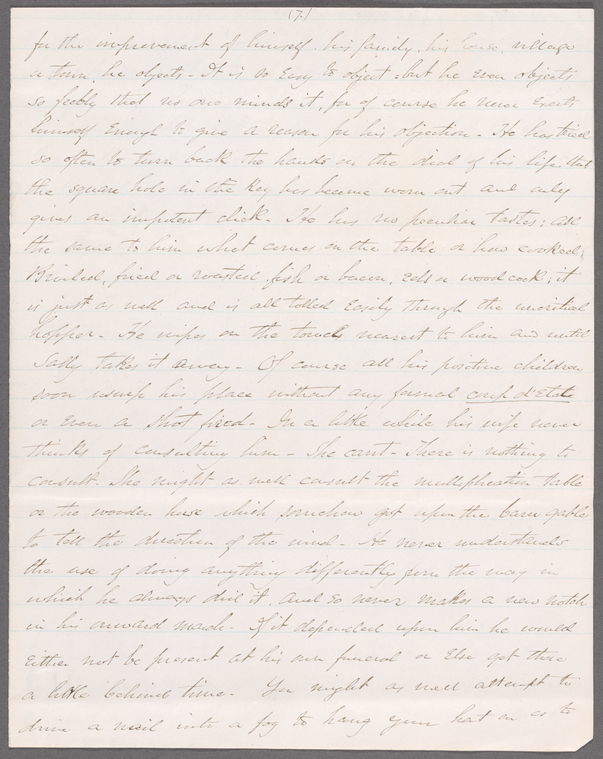 (7)
for the improvement of himself, his family, his house, village
or town, he objects - It is so easy to object: but he even objects
so feebly that no one minds it, for of course he never exerts
himself enough to give a reason for his objection - He has tried
so often to turn back the hands on the dial of his life that
the square hole in the key has become worn out and only
gives an impotent click. He has no peculiar tastes: all
the same to him what comes on the table or how cooked;
Broiled, fried or roasted, fish or bacon, eels or woodcock; it
is just as well and is all rolled easily through the uncritical
hopper - He wipes on the towel nearest to him and until
Sally takes it away - Of course all his positive children
soon usurp his place without any formal coup d'Etat
or even a shot fired - In a little while his wife never
thinks of consulting him - She cant - There is nothing to
consult. She might as well consult the multiplication table
or the wooden horse which somehow got upon the barn gable
to tell the direction of the wind - He never understands
the use of doing anything differently from the way in
which he always did it, and so never makes a new notch
in his onward march. If it depended upon him he would
either not be present at his own funeral or else get there
a little behind time. You might as well attempt to
drive a nail into a fog to hang your hat on as to